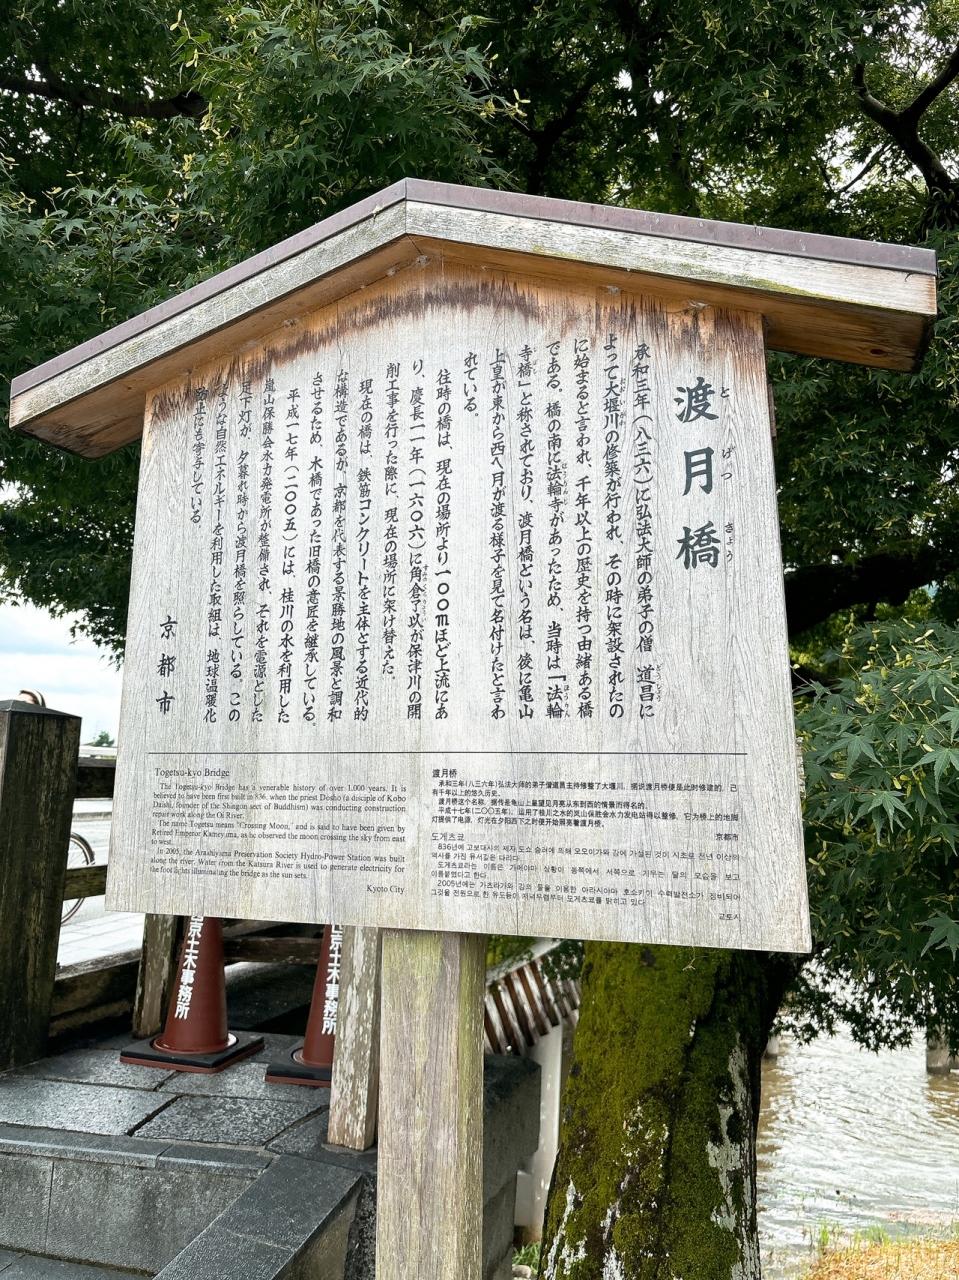 渡月橋
とげつきょう
承和三年(八三六)に弘法大師の弟子の僧 道昌に
よって大堰川の修築が行われ、その時に架設されたの
に始まると言われ、千年以上の歴史を持つ由緒ある橋
である。橋の南に法輪寺があったため、当時は「法輪
寺橋」と称されており、渡月橋という名は、後に亀山
上皇が東から西へ月が渡る様子を見て名付けたと言わ
れている。
往時の橋は、現在の場所より一〇〇mほど上流にあ
り、慶長一一年(一六〇六)に角倉了以が保津川の開
削工事を行った際に、現在の場所に架け替えた。
現在の橋は、鉄筋コンクリートを主体とする近代的
な構造であるが、京都を代表する景勝地の風景と調和
させるため、木橋であった旧橋の意匠を継承している。
平成一七年(二〇〇五)には、桂川の水を利用した
嵐山保勝会水力発電所が整備され、それを電源とした
足下灯が、夕暮れ時から渡月橋を照らしている。この
ような自然エネルギーを利用した取組は、地球温暖化
防止にも寄与している。
京都市
Togetsu-kyo Bridge
The Togetsu-kyo Bridge has a venerable history of over 1,000 years. It is
believed to have been first built in 836, when the priest Dosho (a disciple of Kobo
Daishi, founder of the Shingon sect of Buddhism) was conducting construction
repair work along the Oi River.
The name Togetsu means "Crossing Moon," and is said to have been given by
Retired Emperor Kameyama, as he observed the moon crossing the sky from east
to west.
In 2005, the Arashiyama Preservation Society Hydro-Power Station was built
along the river. Water from the Katsura River is used to generate electricity for
the foot lights illuminating the bridge as the sun sets.
Kyoto City
渡月桥
承和三年(八三六年)弘法大师的弟子僧道昌主持修整了大堰川。据说渡月桥便是此时修建的,已
有千年以上的悠久历史。
渡月桥这个名称,据传是龟山上皇望见月亮从东到西的情景而得名的。
平成十七年(二〇〇五年),运用了桂川之水的岚山保胜会水力发电站得以修整,它为桥上的地脚
灯提供了电源,灯光在夕阳西下之时便开始照亮着渡月桥。
京都市
도게츠쿄
836년에 고보대사의 제자 도쇼 승려에 의해 오오이가와 강에 가설된 것이 시초로 천년 이상의
역사를 가진 유서깊은 다리다
도게츠쿄라는 이름은 가메야마 상황이 동쪽에서 서쪽으로 기우는 달의 모습을 보고
이름붙였다고 한다
2005년에는 가츠라가와 강의 물을 이용한 아라시야마 호쇼카이 수력발전소가 정비되어
그것을 전원으로 한 유도등이 저녁무렵부터 도게츠쿄를 밝히고 있다
교토시
京土木事務所
京土木事務所